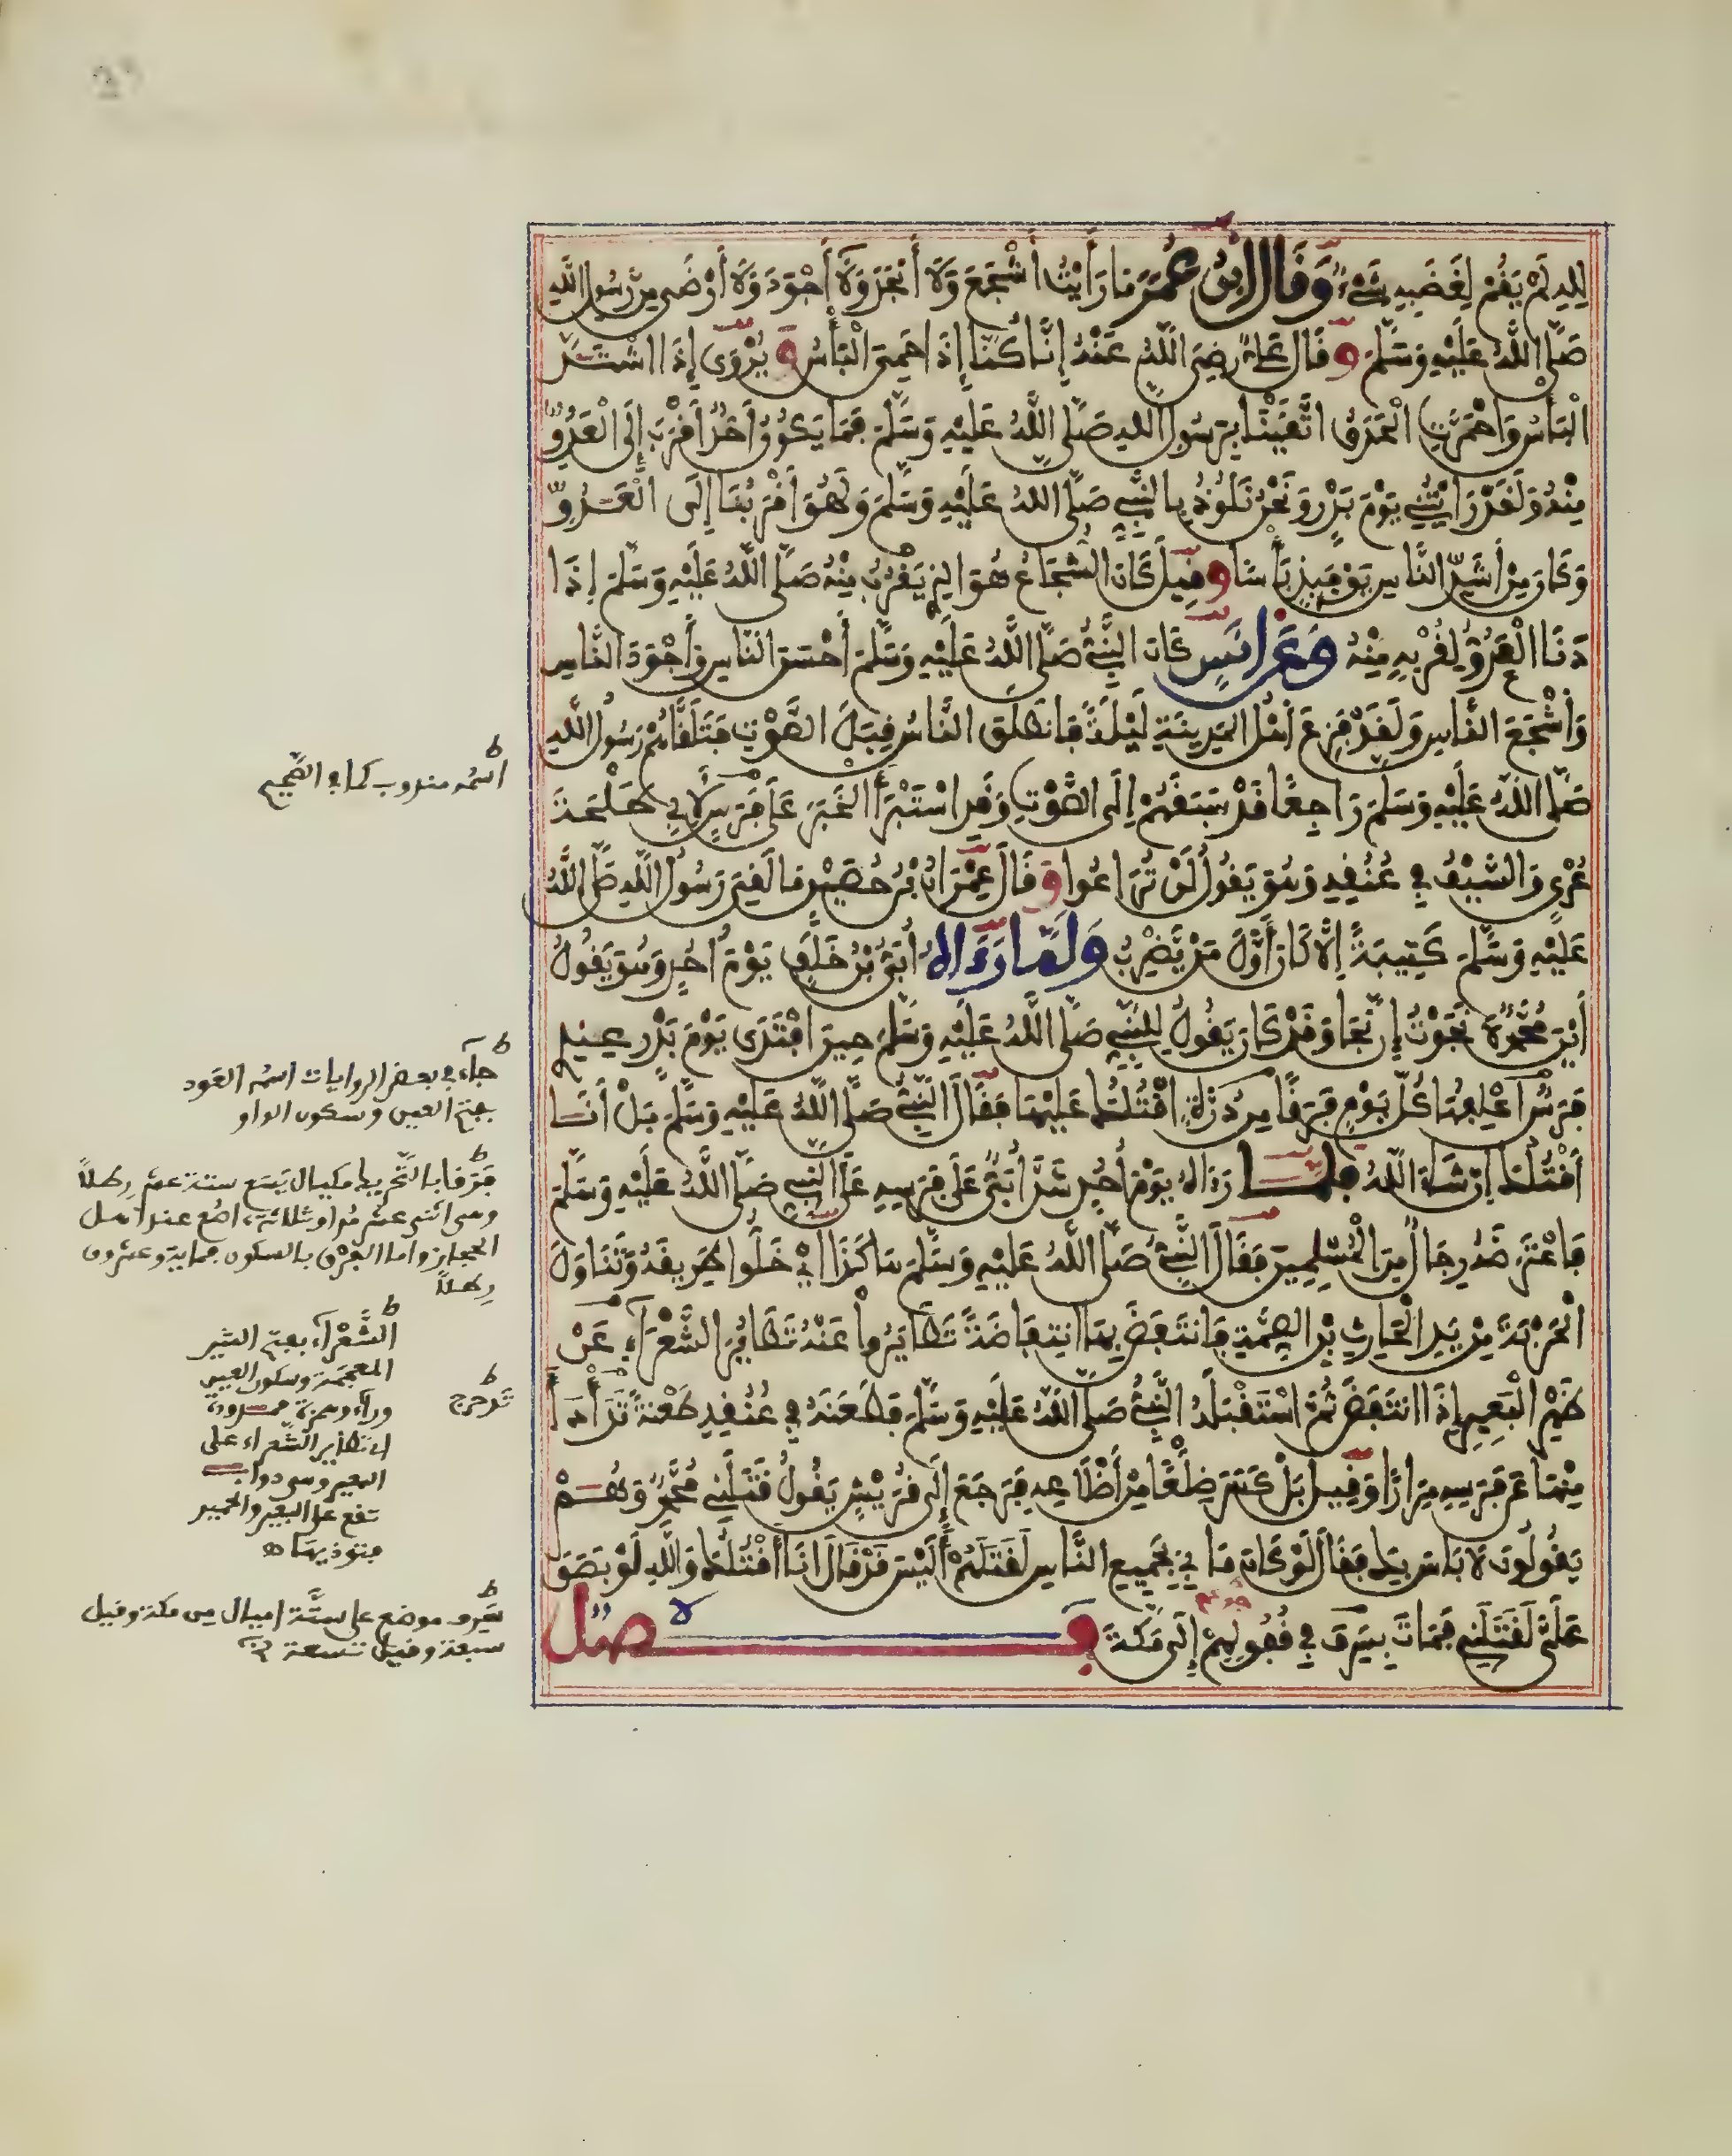 لِلهِ لَمْ يَقُمْ لِغَضَبِهِ شَيْءٌ وَقَالَ ابْنُ عُمَرَ مَا رَأَيْتُ أَشْجَعَ وَلَا أَنْجَدَ وَلَا أَجْوَدَ وَلَا أَرْضَى مِن رَّسُولِ اللَّهِ
صَلَّى اللَّهُ عَلَيْهِ وَسَلَّمَ وَقَالَ عَلِيٌّ رَضِيَ اللَّهُ عَنْهُ إِنَّا كُنَّا إِذَا حَمِيَ الْبَأْسُ وَيُرْوَى إِذَا اشْتَدَّ
الْبَأْسُ وَاحْمَرَّتِ الْحَدَقُ اتَّقَيْنَا بِرَسُولِ اللهِ صَلَّى اللَّهُ عَلَيْهِ وَسَلَّمَ فَمَا يَكُونُ أَحَدٌ أَقْرَبَ إِلَى الْعَدُوِّ
مِنْهُ وَلَقَدْ رَأَيْتُنِي يَوْمَ بَدْرٍ وَنَحْنُ نَلُوذُ بِالنَّبِيِّ صَلَّى اللهُ عَلَيْهِ وَسَلَّمَ وَهُوَ أَقْرَبُنَا إِلَى الْعَدُوِّ
وَكَانَ مِنْ أَشَدِّ النَّاسِ يَوْمَئِذٍ بَأْسًا وَقِيلَ كَانَ الشُّجَاعُ هُوَ الذِي يَقْرُبُ مِنْهُ صَلَّى اللَّهُ عَلَيْهِ وَسَلَّمَ إِذَا
دَنَا الْعَدُوُّ لِقُرْبِهِ مِنْهُ وَعَنْ أَنَسٍ كَانَ النَّبِيُّ صَلَّى اللَّهُ عَلَيْهِ وَسَلَّمَ أَحْسَنَ النَّاسِ وَأَجْوَدَ النَّاسِ
وَأَشْجَعَ النَّاسِ وَلَقَدْ فَزِعَ أَهْلُ الْمَدِينَةِ لَيْلَةً فَانطَلَقَ النَّاسُ قِبَلَ الصَّوْتِ فَتَلَقَّاهُمْ رَسُولُ اللَّهِ
صَلَّى اللَّهُ عَلَيْهِ وَسَلَّمَ رَاجِعًا قَدْ سَبَقَهُمْ إِلَى الصَّوْتِ وَقَدِ اسْتَبْرَأَ الْخَبَرَ عَلَى فَرَسٍ لِأَبِي طَلْحَةَ
عُرْيٍ وَالسَّيْفُ فِي عُنُقِهِ وَهُوَ يَقُولُ لَنْ تُرَاعُوا وَقَالَ عِمْرَانُ بْنُ حُصَيْنٍ مَا لَقِيَ رَسُولُ اللَّهِ صَلَّى اللَّهُ
عَلَيْهِ وَسَلَّمَ كَتِيبَةً إِلَّا كَانَ أَوَّلَ مَنْ يَّضْرِبُ وَلَمَّا رَءَاهُ أُبَيُّ بْنُ خَلَفٍ يَوْمَ أُحُدٍ وَهُوَ يَقُولُ
أَيْنَ مُحَمَّدٌ لَا نَجَوْتُ إِن نَّجَا وَقَدْ كَانَ يَقُولُ لِلنَّبِيِّ صَلَّى اللَّهُ عَلَيْهِ وَسَلَّمَ حِينَ افْتَدَى يَوْمَ بَدْرٍ عِنْدِي
فَرَسٌ أَعْلِفُهَا كُلَّ يَوْمٍ فَرَقًا مِن ذُرَةٍ أَقْتُلُكَ عَلَيْهَا فَقَالَ النَّبِيُّ صَلَّى اللَّهُ عَلَيْهِ وَسَلَّمَ بَلْ أَنَا
أَقْتُلُكَ إِن شَاءَ اللَّهُ فَلَمَّا رَءَاهُ يَوْمَ أُحُدٍ شَدَّ أُبَيٌّ عَلَى فَرَسِهِ عَلَى النَّبِيِّ صَلَّى اللَّهُ عَلَيْهِ وَسَلَّمَ
فَاعْتَرَضَهُ رِجَالٌ مِّنَ الْمُسْلِمِينَ فَقَالَ النَّبِيُّ صَلَّى اللَّهُ عَلَيْهِ وَسَلَّمَ هَاكَذَا أَيْ خَلُّوا طَرِيقَهُ وَتَنَاوَلَ
الْحَرْبَةَ مِنْ يَدِ الْحَارِثِ بْنِ الصِّمَّةِ فَانتَفَضَ بِهَا انتِفَاضَةً تَطَايَرُوا عَنْهُ تَطَايُرَ الشَّعْرَاءِ عَنْ
ظَهْرِ الْبَعِيرِ إِذَا انتَفَضَ ثُمَّ اسْتَقْبَلَهُ النَّبِيُّ صَلَّى اللَّهُ عَلَيْهِ وَسَلَّمَ فَطَعَنَهُ فِي عُنُقِهِ طَعْنَةً تَدَأْدَأَ
مِنْهَا عَن فَرَسِهِ مِرَارًا وَقِيلَ بَلْ كَسَرَ ضِلْعًا مِنْ أَضْلَاعِهِ فَرَجَعَ إِلَى قُرَيْشٍ يَقُولُ قَتَلَنِي مُحَمَّدٌ وَهُمْ
يَقُولُونَ لَا بَأْسَ بِكَ فَقَالَ لَوْ كَانَ مَا بِي بِجَمِيعِ النَّاسِ لَقَتَلَهُمْ أَلَيْسَ قَدْ قَالَ أَنَا أَقْتُلُكَ وَاللَّهِ لَوْ بَصَقَ
عَلَيَّ لَقَتَلَنِي فَمَاتَ بِسَرِفَ فِي قُفُولِهِمْ إِلَى مَكَّةَ فصل
اسمه مندوب كما في الصحيح
جاء في بعض الروايات اسمه العود
بفتح العين وسكون الواو
فرقا بالتحريك مكيال يسع ستة عشر رطلا
وهي اثنى عشر مدا وثلاثة ءاصع عند اهل
الحجاز واما الفرق بالسكون فمائة وعشرون
رطلا
الشعراء بفتح الشين
المعجمة وسكون العين
وراء وهمزة ممدودة
اي تطاير الشعراء على
البعير وهي دواب
تقع على البعير والحمير
فتوذيها
تدحرج
سرف موضع على ستة اميال من مكة وقيل
سبعة وقيل تسعة